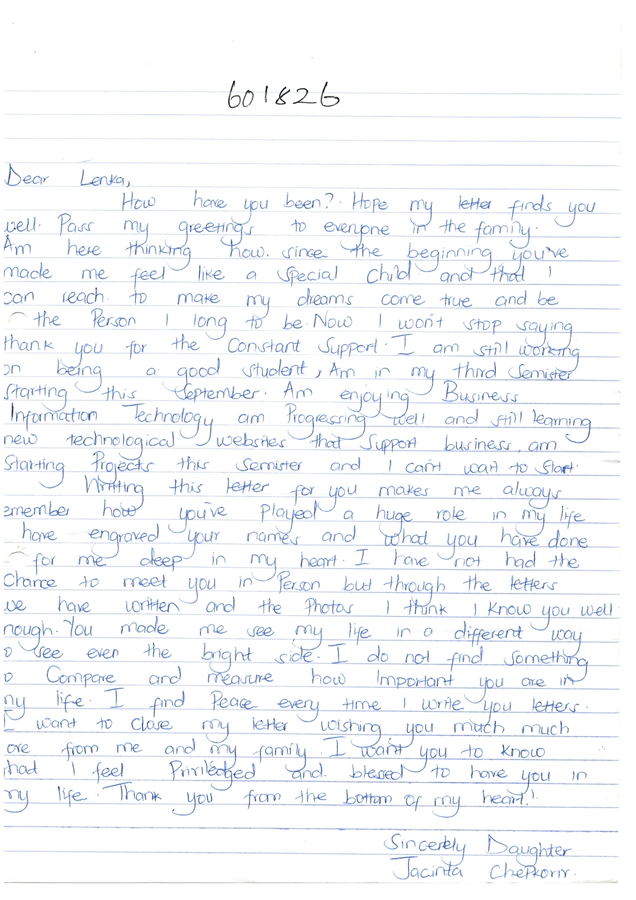 601826
Dear Lenka,
How have you been? Hope my letter finds you
well. Pass my greetings to everyone in the family.
Am here thinking how. since the beginning you've
made me feel like a special child and that I
can reach to make my dreams come true and be
the Person I long to be. Now I won't stop saying
thank you for the Constant Support. I am still working
on being a good student, Am in my third Semister
starting this September. Am enjoying Business
Information Technology am Progressing well and still learning
new technological websites that support business, am
Starting Projects this Semister and I can't wait to start.
Writting this letter for you makes me always
emember how you've Played a huge role in my life
have engraved your names and what you have done
for me deep in my heart. I have not had the
Chance to meet you in Person but through the letters
we have written and the Photos I think I know you well
nough. You made me see my life in a different way
o see even the bright side. I do not find something
o Compare and measure how Important you are in
my life. I find Peace every time I write you letters.
I want to close my letter wishing you much much
ore from me and my family. I want you to know
that I feel Priviledged and blessed to have you in
my life. Thank you from the bottom of my heart!
Sincerely Daughter
Jacinta Chepkorir.